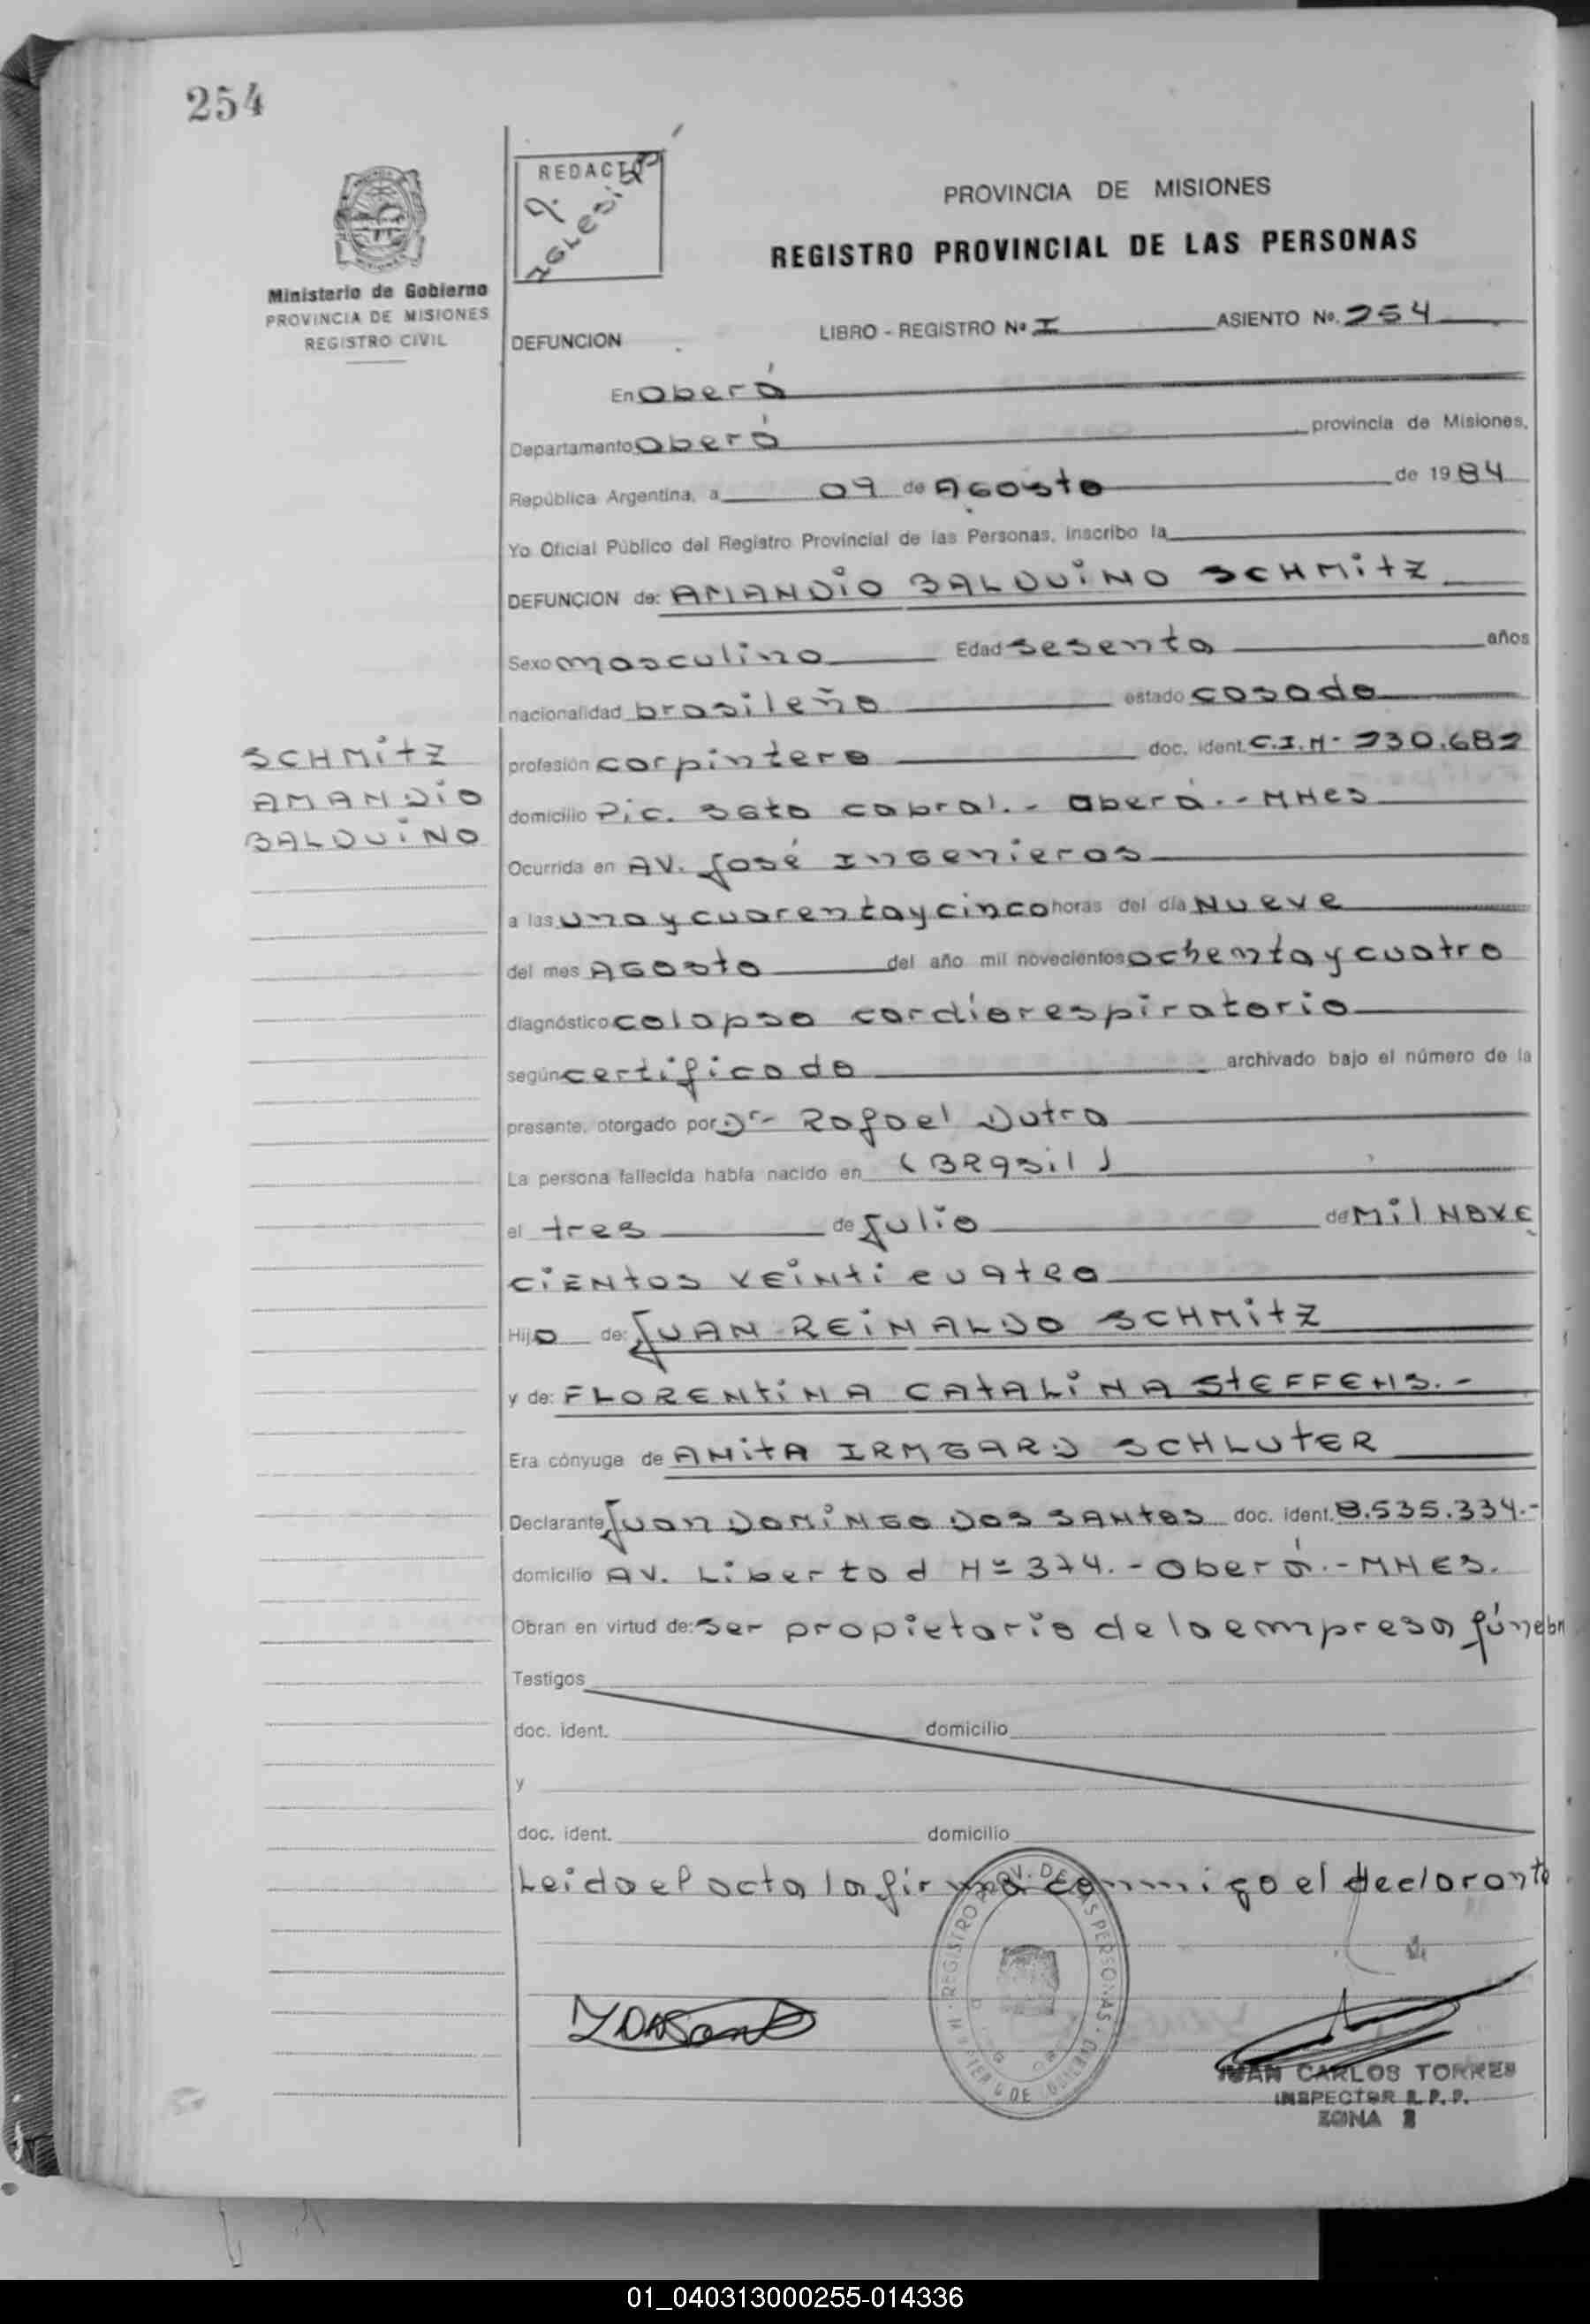 254
REDACTO
J. IGLESIAS
PROVINCIA DE MISIONES
REGISTRO PROVINCIAL DE LAS PERSONAS
Ministerio de Gobierno
PROVINCIA DE MISIONES
REGISTRO CIVIL
DEFUNCION LIBRO - REGISTRO Nº I ASIENTO Nº. 254
En Oberá
Departamento Oberá provincia de Misiones,
República Argentina, a 09 de Agosto de 1984
Yo Oficial Público del Registro Provincial de las Personas, inscribo la
DEFUNCION de: AMANDIO BALDUINO SCHMITZ
Sexo masculino Edad sesenta años
nacionalidad brasileño estado casado
SCHMITZ
AMANDIO
BALDUINO
profesión carpintero doc. ident. C.I.N- 230.682
domicilio Pic. Sgto cabral.- Oberá.-MNes
Ocurrida en AV. José Ingenieros
a las una y cuarenta y cinco horas del día Nueve
del mes Agosto del año mil novecientos ochenta y cuatro
diagnóstico colapso cardiorespiratorio
según certificado archivado bajo el número de la
presente, otorgado por Dr- Rafael Dutra
La persona fallecida había nacido en (BRasil)
el tres de Julio de Mil NOVE
CIENTOS VEINTI CUATRO
Hijo de: JUAN REINALDO SCHMITZ
y de: FLORENTINA CATALINA STEFFENS.-
Era cónyuge de ANITA IRMGARD SCHLUTER
Declarante Juan DOMINGO DOS SANTOS doc. ident. 8.535.334.-
domicilio AV. Libertad Nº 374.-Oberá.-MNES.
Obran en virtud de: ser propietario de la empresa fúnebre
Testigos
doc. ident. domicilio
y
doc. ident. domicilio
Leida el acta la firma conmigo el declarante
REGISTRO PROV. DE LAS PERSONAS
JUAN CARLOS TORRES
INSPECTOR R.P.P.
ZONA 2
01_040313000255-014336